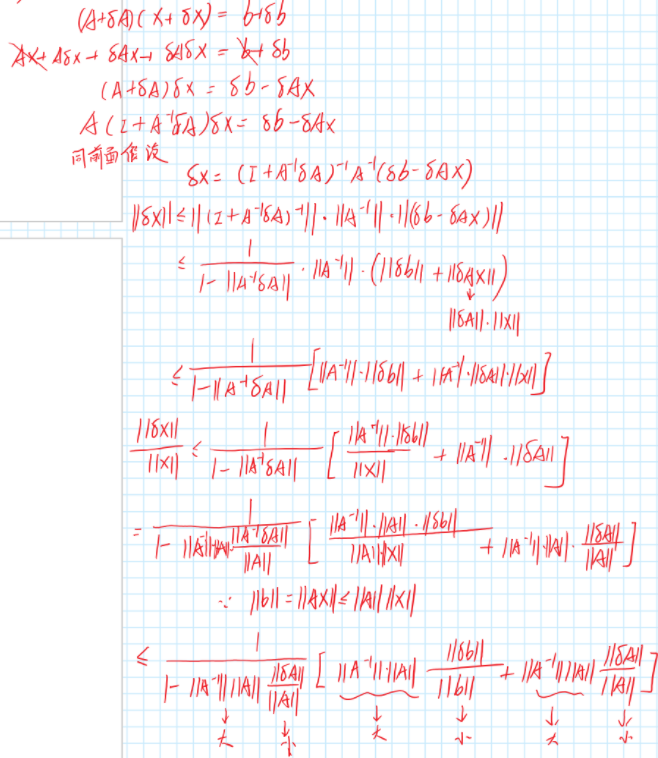 (A+δA)(x+δx) = b+δb
Ax + Aδx + δAx + δAδx = b + δb
(A+δA)δx = δb - δAx
A(I+A⁻¹δA)δx = δb - δAx
同前面假设
δx = (I+A⁻¹δA)⁻¹A⁻¹(δb - δAx)
||δx|| ≤ ||(I+A⁻¹δA)⁻¹|| · ||A⁻¹|| · ||(δb - δAx)||
≤ 1/(1-||A⁻¹δA||) · ||A⁻¹|| · (||δb|| + ||δAx||)
↓
||δA|| · ||x||
≤ 1/(1-||A⁻¹δA||) [||A⁻¹|| · ||δb|| + ||A⁻¹|| · ||δA|| · ||x||]
||δx||/||x|| ≤ 1/(1-||A⁻¹δA||) [||A⁻¹|| · ||δb||/||x|| + ||A⁻¹|| · ||δA||]
= 1/(1-||A⁻¹|| ||A|| · ||A⁻¹δA||/||A||) [||A⁻¹|| · ||A|| · ||δb||/||A|| ||x|| + ||A⁻¹|| · ||A|| · ||δA||/||A||]
∵ ||b|| = ||Ax|| ≤ ||A|| ||x||
≤ 1/(1-||A⁻¹|| ||A|| ||δA||/||A||) [||A⁻¹|| · ||A|| ||δb||/||b|| + ||A⁻¹|| ||A|| ||δA||/||A||]
↓ ↓ ↓ ↓ ↓ ↓
大 小 大 小 大 小